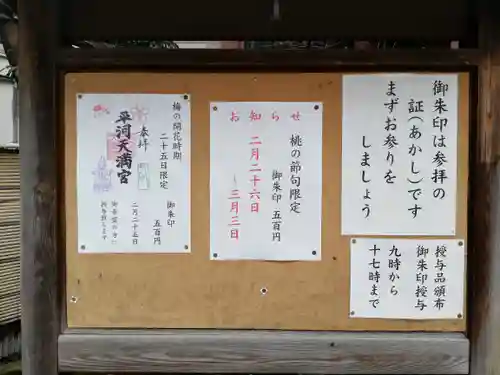 御朱印は参拝の
証(あかし)です
まずお参りを
しましょう
授与品頒布
御朱印授与
九時から
十七時まで
おしらせ
桃の節句限定
御朱印 五百円
二月二十六日
~三月三日
梅の開花時期
二十五日限定
御朱印
五百円
奉拝
平河天満宮
二月二十五日